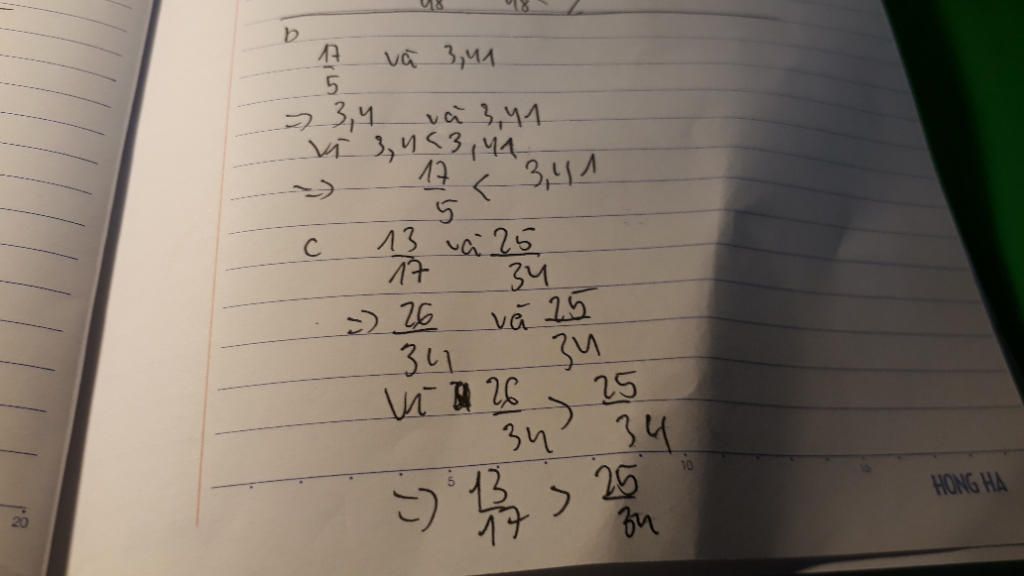 48 48
b
17/5 và 3,41
=> 3,4 và 3,41
Vì 3,4 < 3,41
=> 17/5 < 3,41
c 13/17 và 25/34
=> 26/34 và 25/34
Vì 26/34 > 25/34
5 10 15
HONG HA
=> 13/17 > 25/34
20